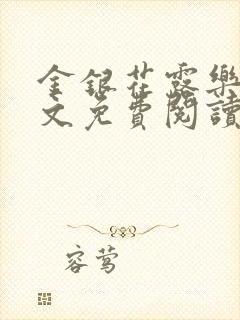 金銀花露樂
文免費閱讀
容鶯